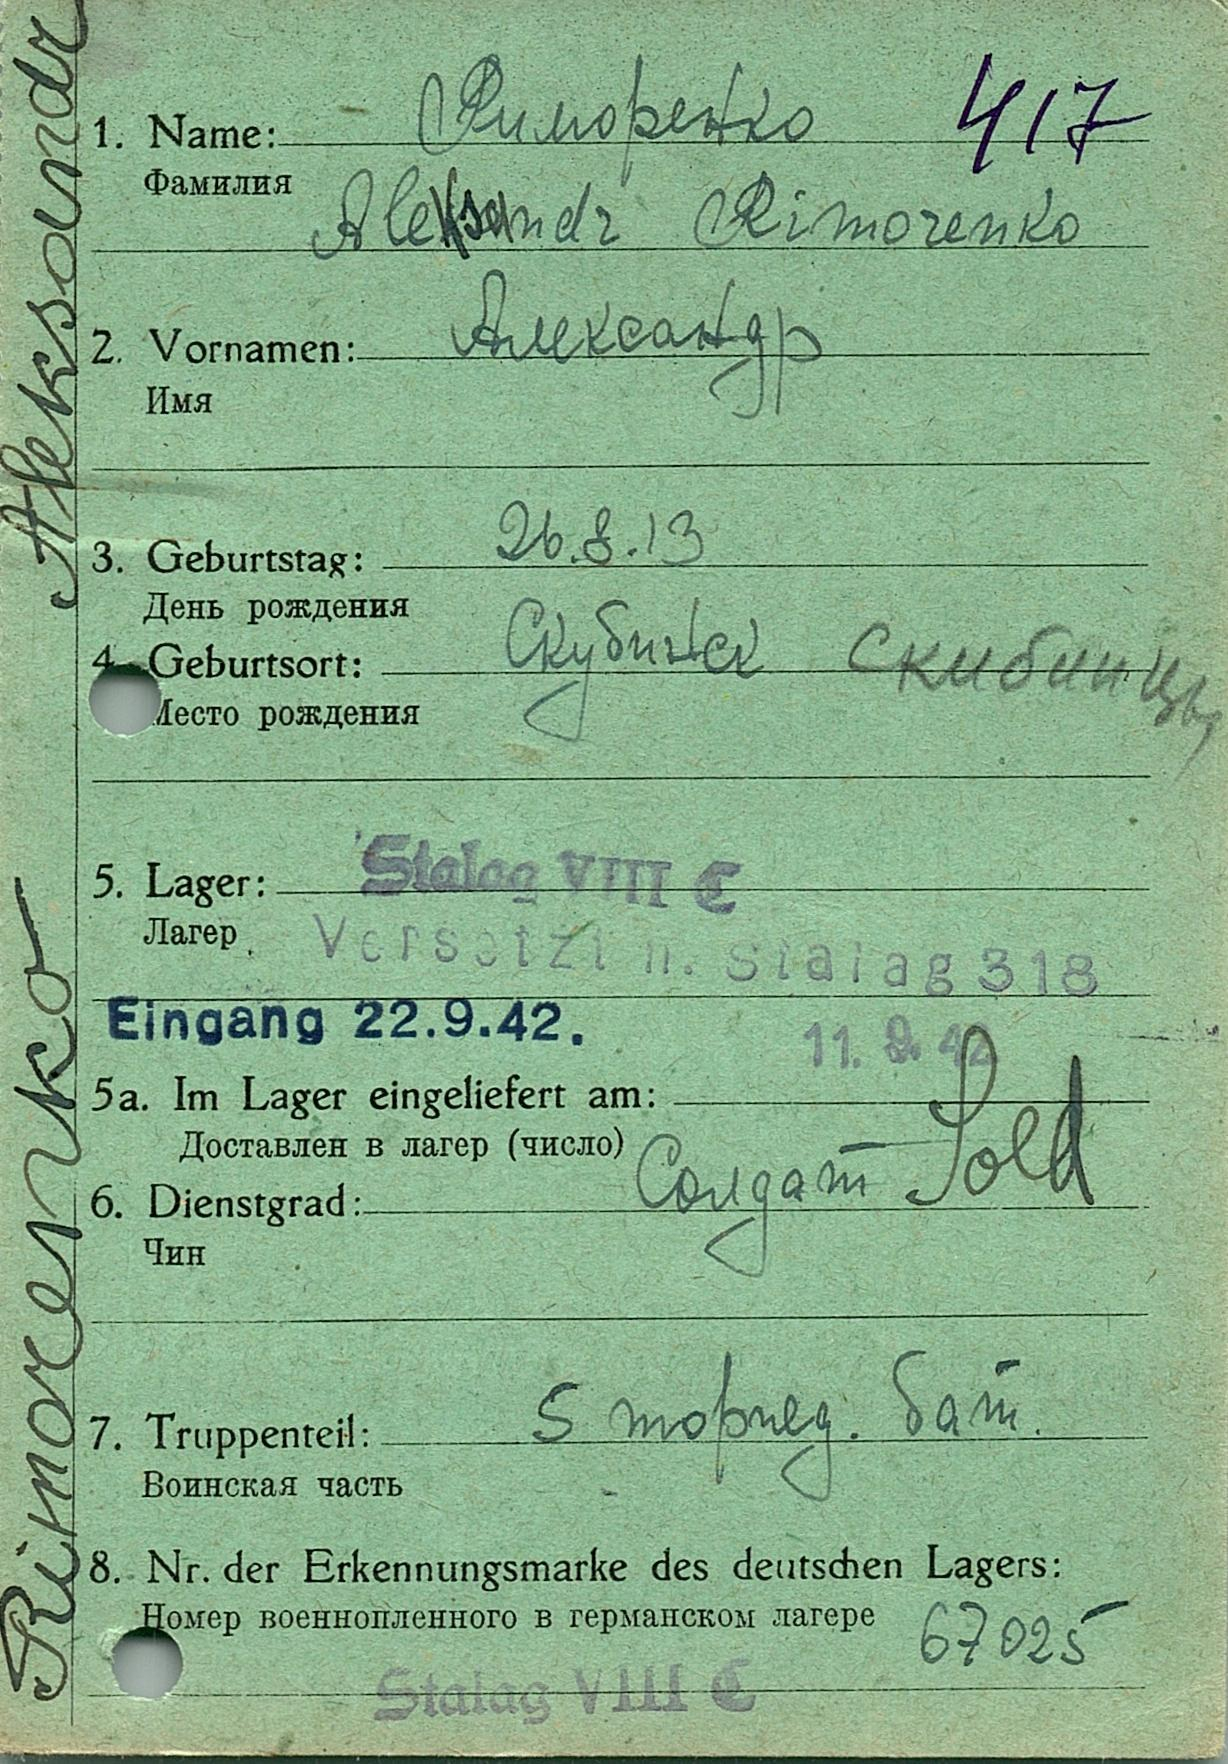 Rimorenko Aleksandr
1. Name: Риморенко 417
Фамилия
Aleksandr Rimorenko
2. Vornamen: Александр
Имя
3. Geburtstag: 26.8.13
День рождения
4. Geburtsort: Скубинск Скибинцы
Место рождения
5. Lager: Stalag VIII C
Лагер
Versetzt n. Stalag 318
Eingang 22.9.42. 11. 9. 42
5a. Im Lager eingeliefert am:
Доставлен в лагер (число)
6. Dienstgrad: Солдат Sold
Чин
7. Truppenteil: 5 бат.
Воинская часть
8. Nr. der Erkennungsmarke des deutschen Lagers:
Номер военнопленного в германском лагере 67025
Stalag VIII C